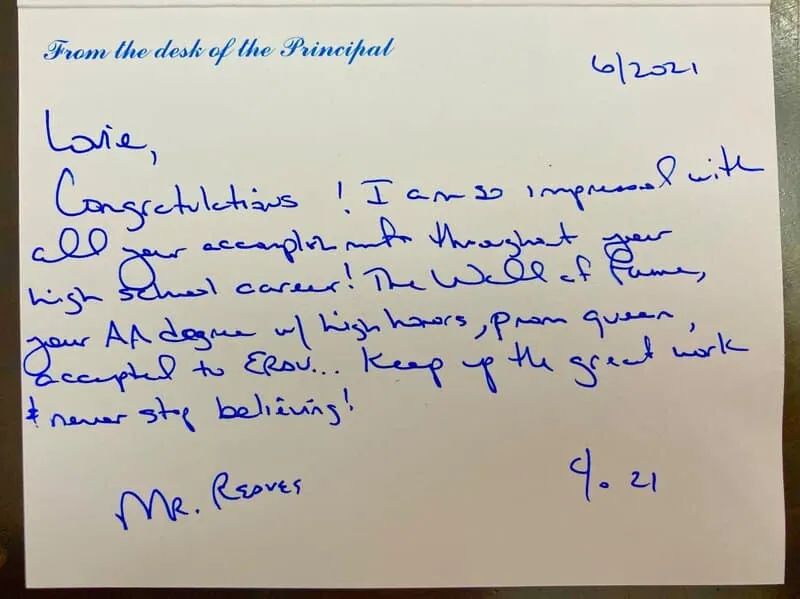 From the desk of the Principal
6/2021
Lorie,
Congratulations ! I am so impressed with
all your accomplishments throughout your
high school career! The Wall of Fame,
your AA degree w/ high honors, prom queen,
accepted to ERAU... Keep up the great work
& never stop believing!
Mr. Reaves
c/o 21